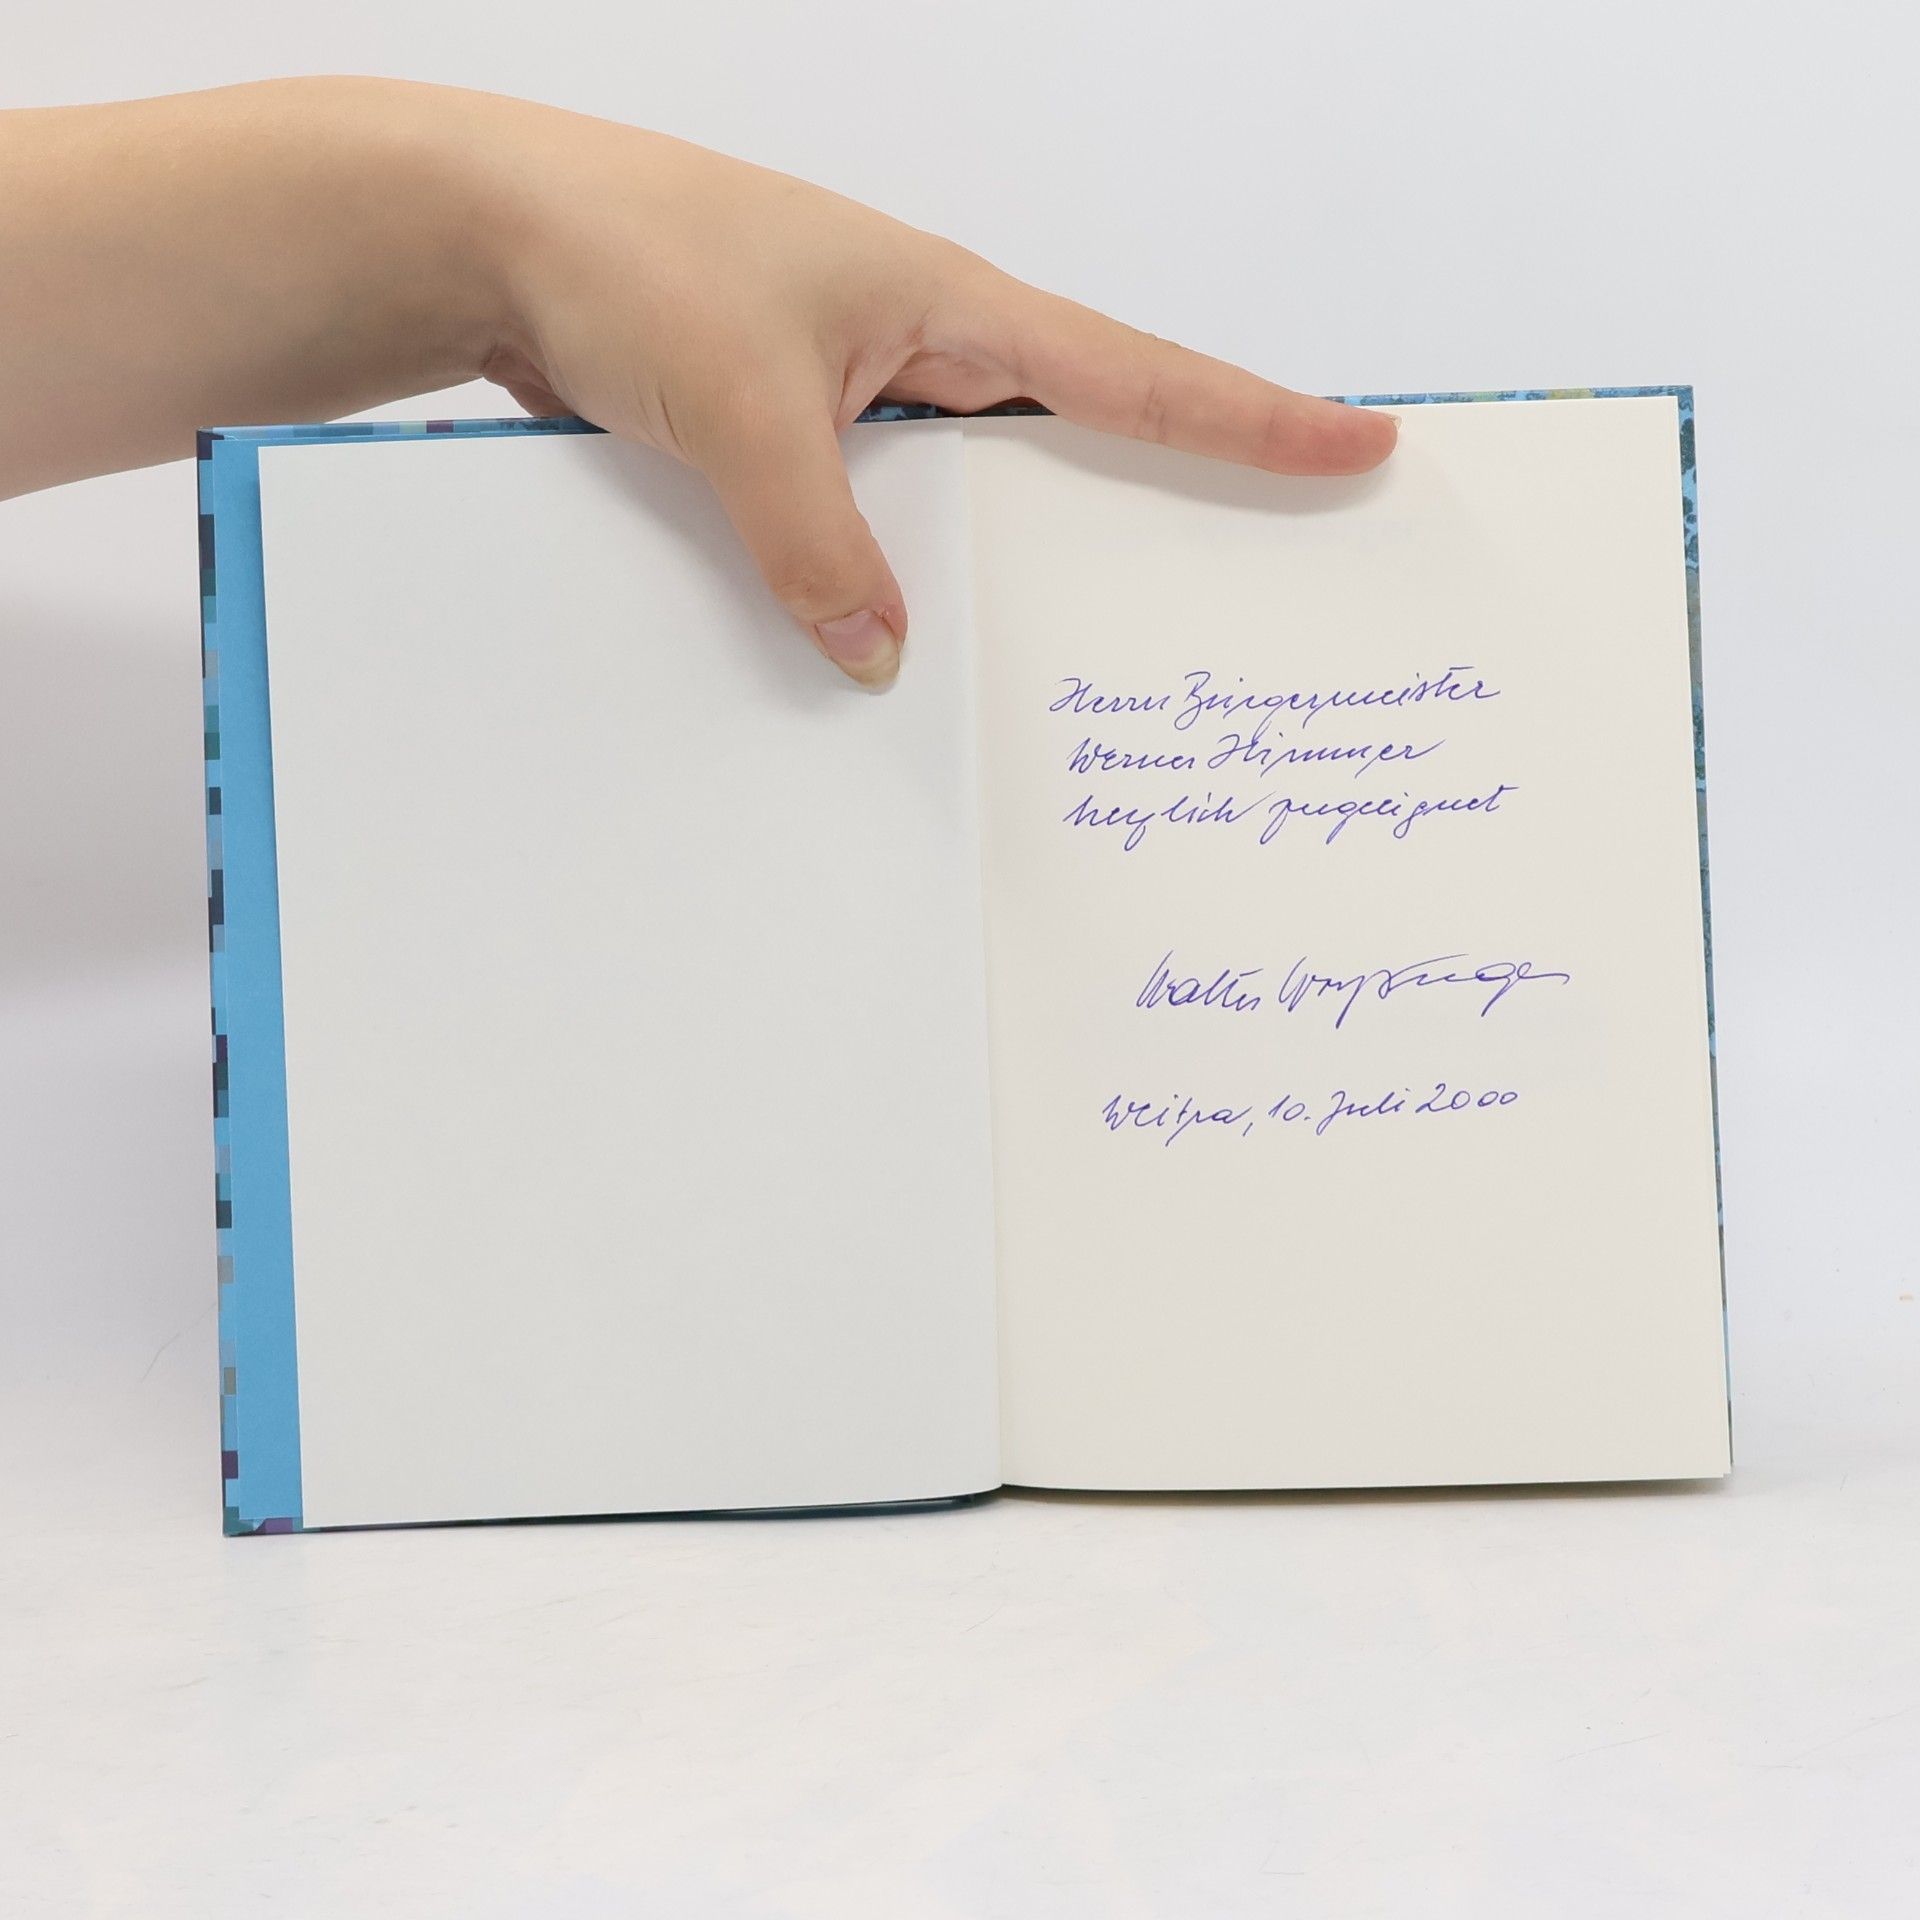 Herrn Bürgermeister
Werner Himmer
herzlich zugeeignet
Walter
Weitra, 10. Juli 2000